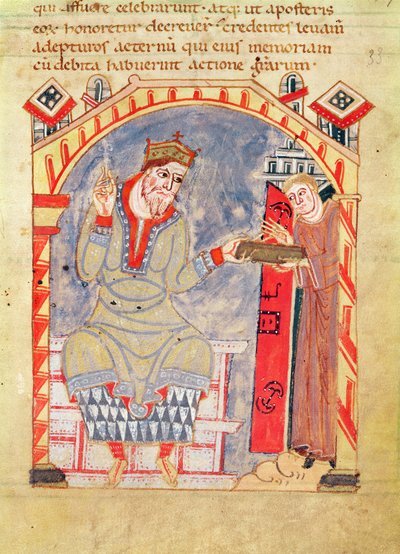 qui affuere celebrarunt· atq; ut aposteris
eor honoretur decreuer̄· credentes se uam̄
adepturos aeternū qui eius memoriam
cū debita habuerint actione grarum·
33